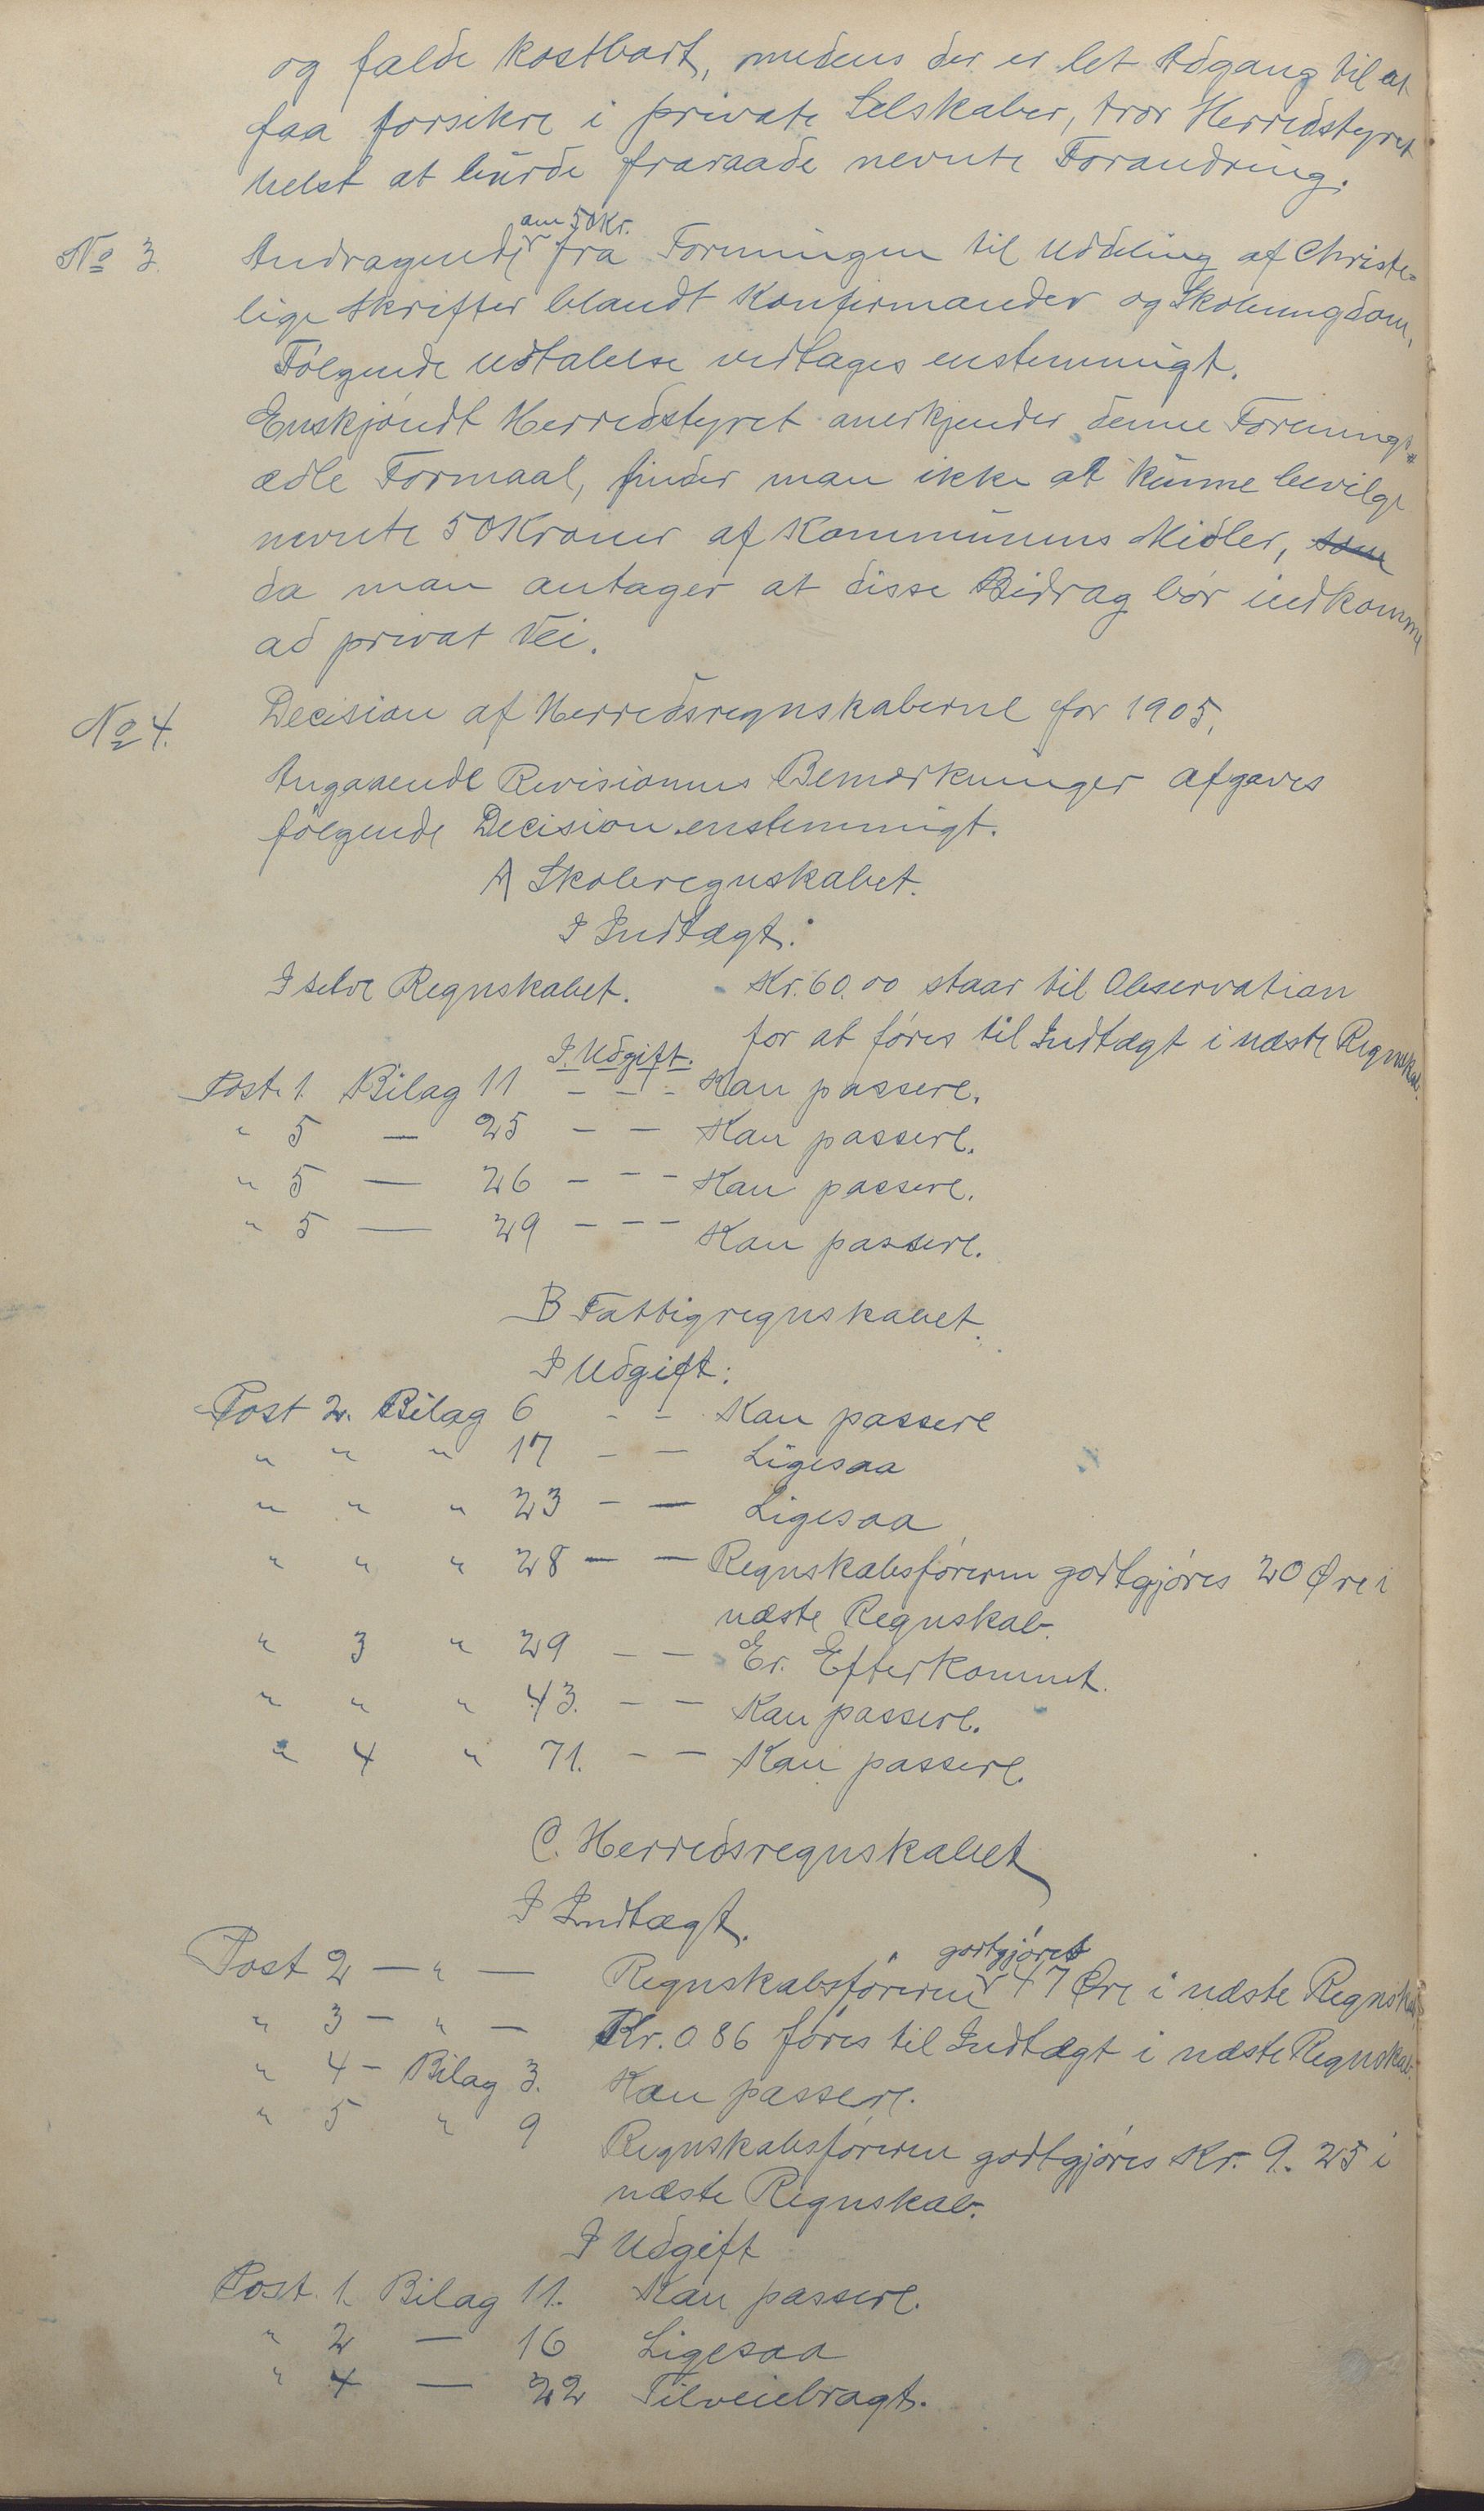 og falde kostbart, medens der er let Adgang til at
faa forsikre i private Selskaber, tror Herredstyret
helst at burde fraraade nevnte Forandring.
No 3. Andragende om 50 Kr. fra Foreningen til Uddeling af Christe=
lige Skrifter blandt Konfirmander og Skoleungdom.
Følgende Udtalelse vedtages enstemmigt.
Enskjøndt Herredstyret anerkjender denne Forenings
ædle Formaal, finder man ikke at kunne bevilge
nevnte 50 Kroner af Kommunens Midler, som
da man antager at disse Bidrag bør indkomme
ad privat Vei.
No 4. Decision af Herredsregnskaberne for 1905.
Angaaende Revisionens Bemærkninger afgaves
følgende Decision enstemmigt.
A Skoleregnskabet.
I Indtægt:
I selve Regnskabet. Kr. 60.00 staar til Observation
for at føres til Indtægt i næste Regnskab.
I Udgift.
Post 1. Bilag 11 - - - Kan passere.
" 5 — 25 - - Kan passere.
" 5 — 26 - - - Kan passere.
" 5 — 29 - - - Kan passere.
B Fattigregnskabet.
I Udgift:
Post 2. Bilag 6 - - Kan passere
" " " 17 - - Ligesaa
" " " 23 - - Ligesaa
" " " 28 - - Regnskabsføreren godtgjøres 20 Øre i
næste Regnskab.
" 3 " 29 - - Er. Efterkommet.
" " " 43. - - Kan passere.
" 4 " 71. - - Kan passere.
C. Herredsregnskabet
I Indtægt.
Post 2 — " — Regnskabsføreren godtgjøres 47 Øre i næste Regnskab
" 3 — " — Kr. 0 86 føres til Indtægt i næste Regnskab.
" 4 - Bilag 3. Kan passere.
" 5 " 9 Regnskabsføreren godtgjøres Kr. 9. 25 i
næste Regnskab.
I Udgift
Post. 1. Bilag 11. Kan passere.
" 2 — 16 Ligesaa
" 4 — 22 Tilveiebragt.